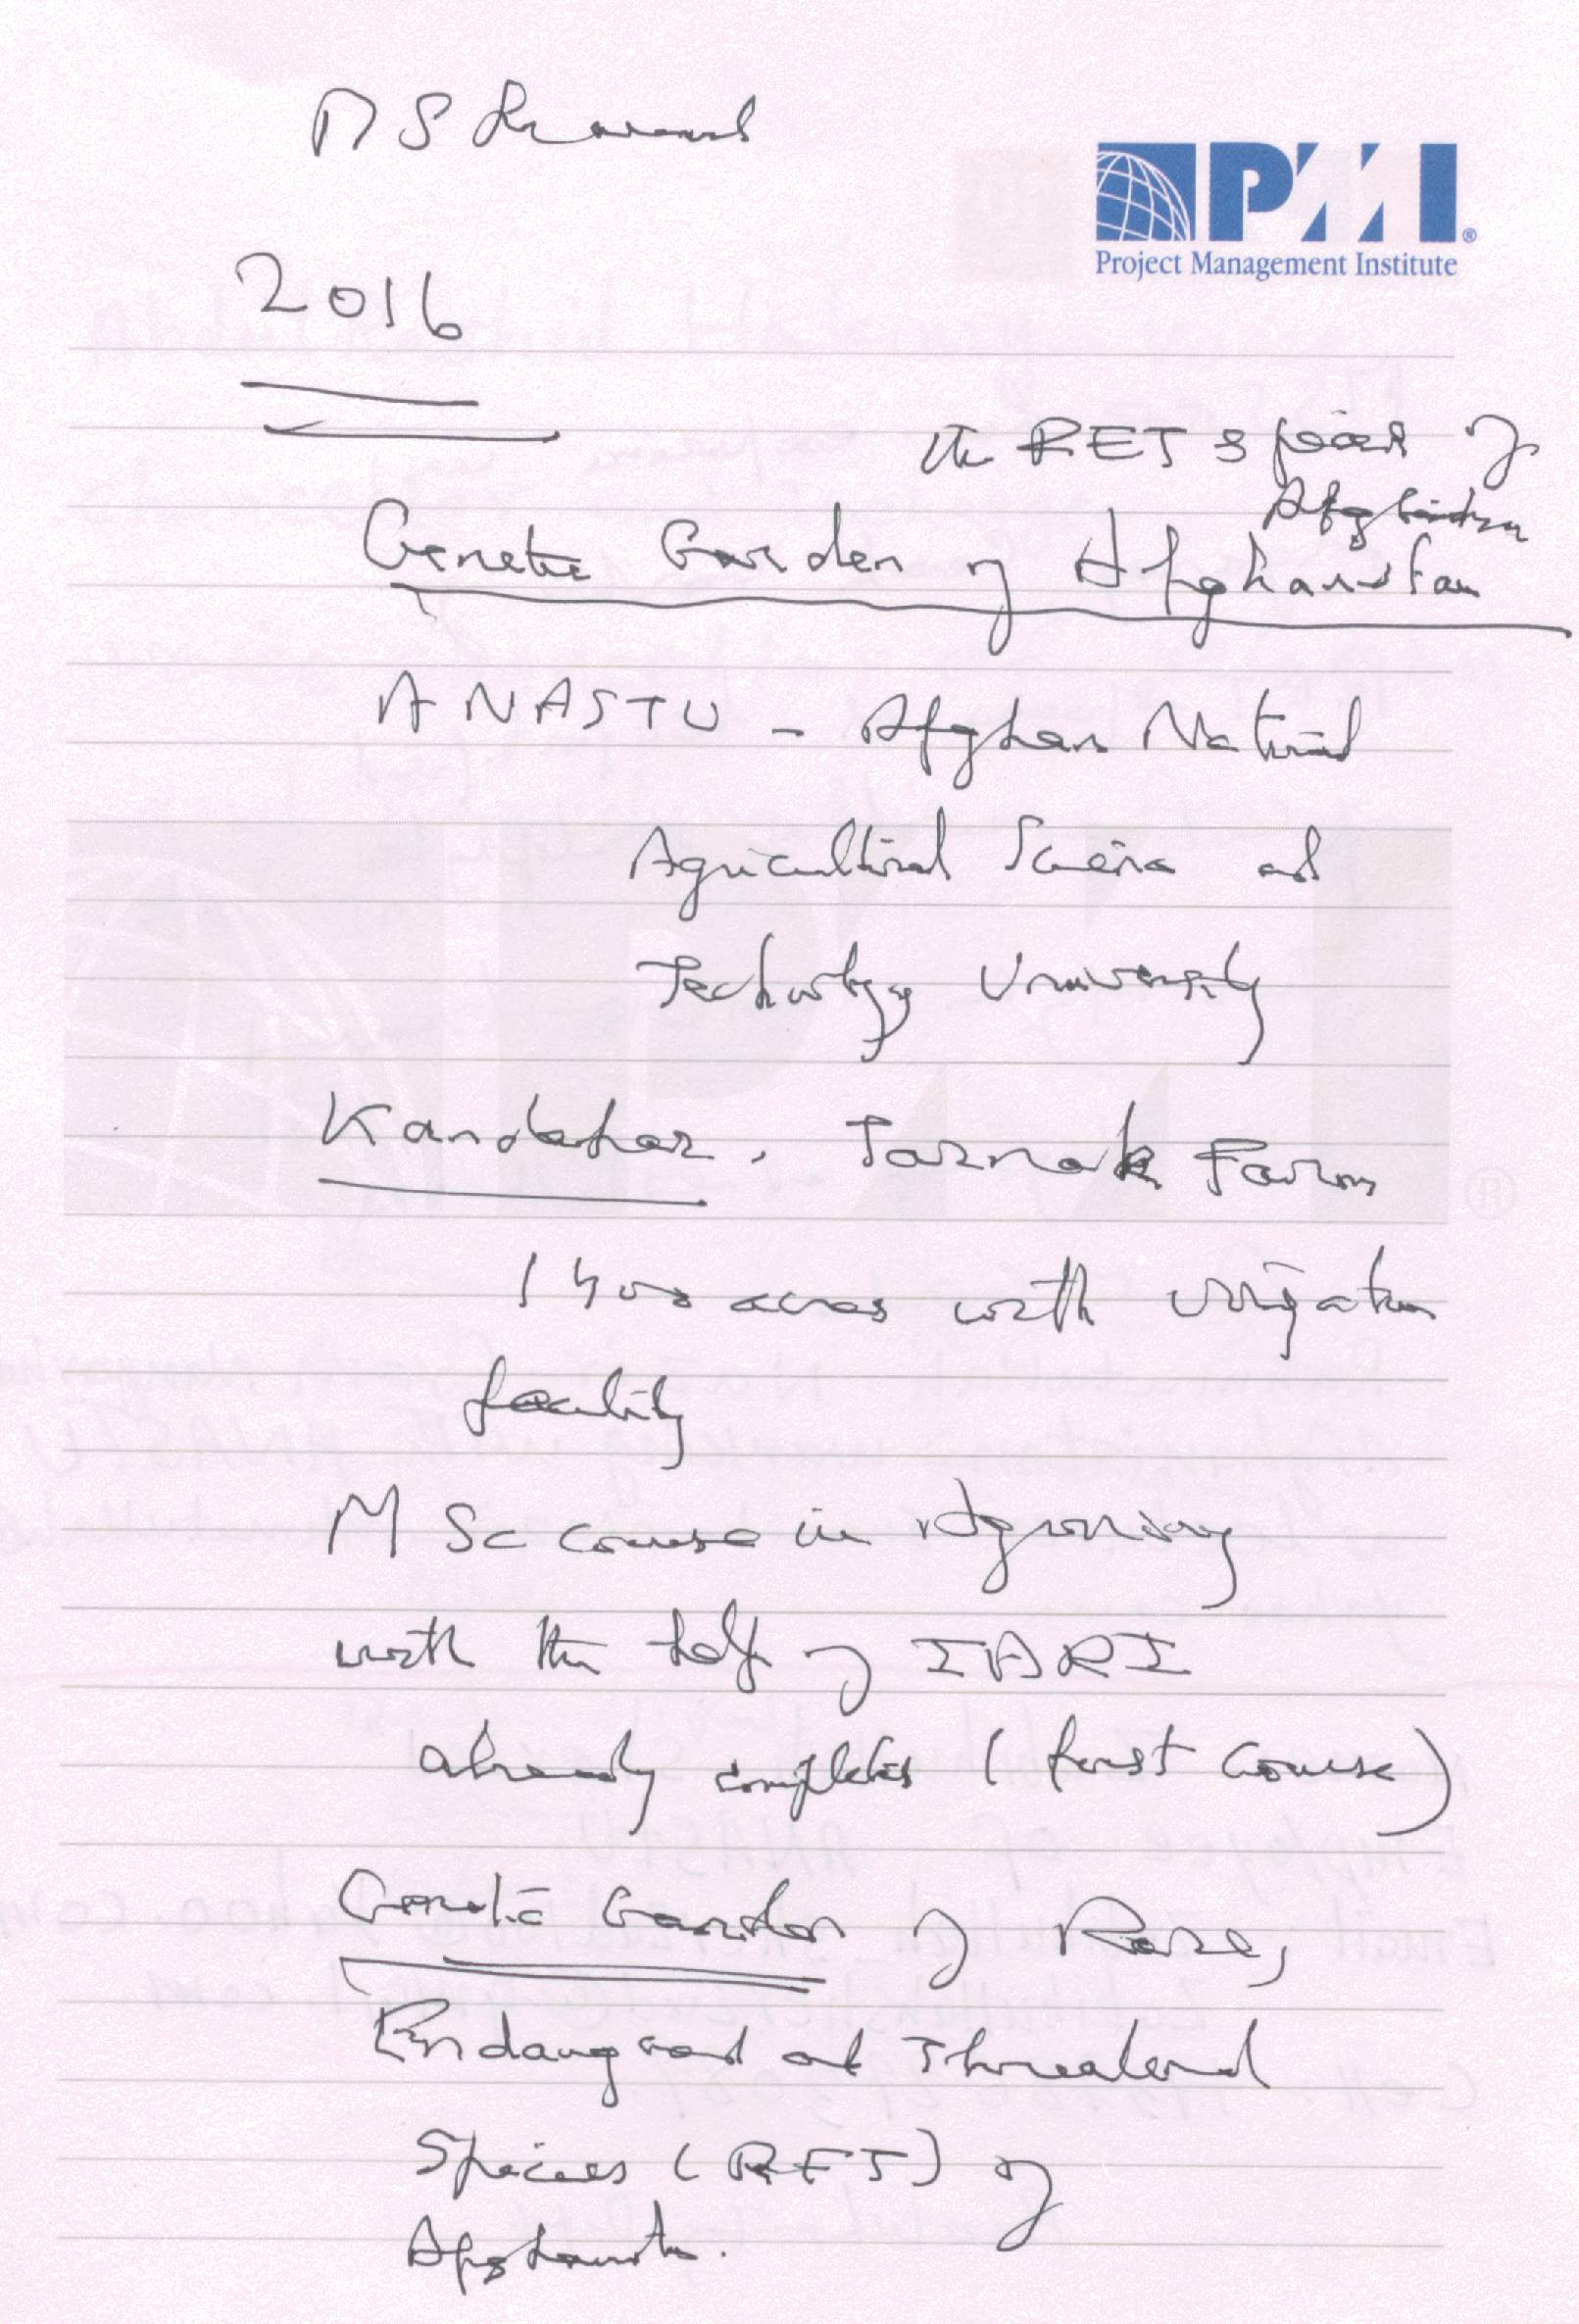 PMI®
Project Management Institute
2016
the RET species of
Afghanistan
Genetic Garden of Afghanistan
ANASTU - Afghan National
Agricultural Science and
Technology University
Kandahar, Tarnak Farm
1400 acres with irrigation
facility
M Sc course in Agronomy
with the help of IARI
already completed (first course)
Genetic Garden of Rare,
Endangered and Threatened
Species (RET) of
Afghanistan.